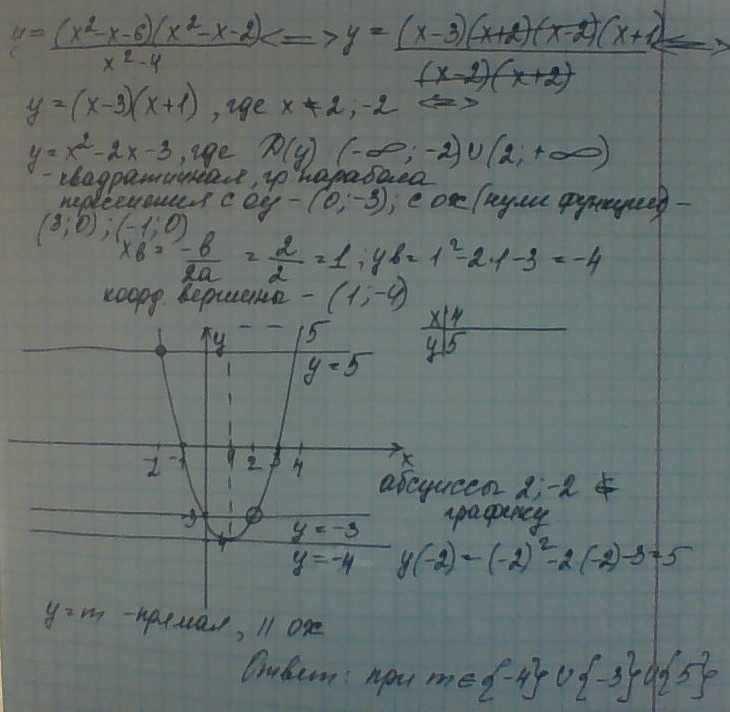 y = (x²-x-6)(x²-x-2) / x²-4 <=> y = (x-3)(x+2)(x-2)(x+1) / (x-2)(x+2) <=>
y = (x-3)(x+1), где x ≠ 2; -2 <=>
y = x²-2x-3, где D(y) (-∞; -2)∪(2; +∞)
- квадратичная, гр парабола
пересечения с оу - (0; -3); с ох (нули функции) -
(3; 0); (-1; 0)
xв = -в/2a = 2/2 = 1; yв = 1²-2·1-3 = -4
коорд. вершины - (1; -4)
x 4
y 5
y 5
y = 5
-2 -1 1 2 3 4 x
абсциссы 2; -2 ∉
графику
-3
y = -3
y = -4
y(-2) = (-2)²-2·(-2)-3=5
y=m - прямая, || ох
Ответ: при m ∈ {-4} ∪ {-3} ∪ {5}